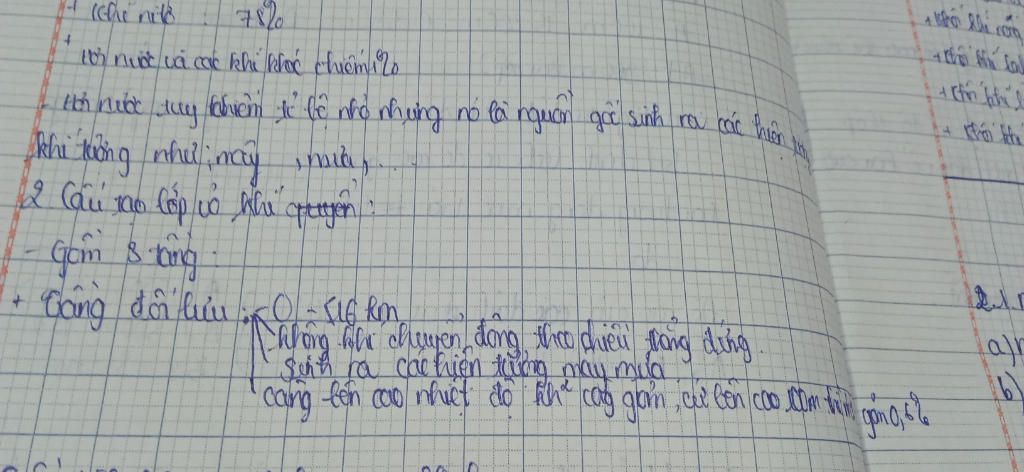 + khí nitơ : 78%
+ hơi nước và các khí khác chiếm 1%
- Hơi nước tuy chiếm tỉ lệ nhỏ nhưng nó là nguồn gốc sinh ra các hiện tượng
khí tượng như: mây, mưa,...
2 Cấu tạo lớp vỏ khí quyển:
- Gồm 3 tầng:
+ tầng đối lưu: 0 - 16 km
không khí chuyển động theo chiều thẳng đứng.
sinh ra các hiện tượng mây mưa
càng lên cao nhiệt độ kh² càng giảm, cứ lên cao 100m giảm 0,6%
+ khối khí
+ khối khí
+ khối khí
+ khối khí
2.1.
a)
b)